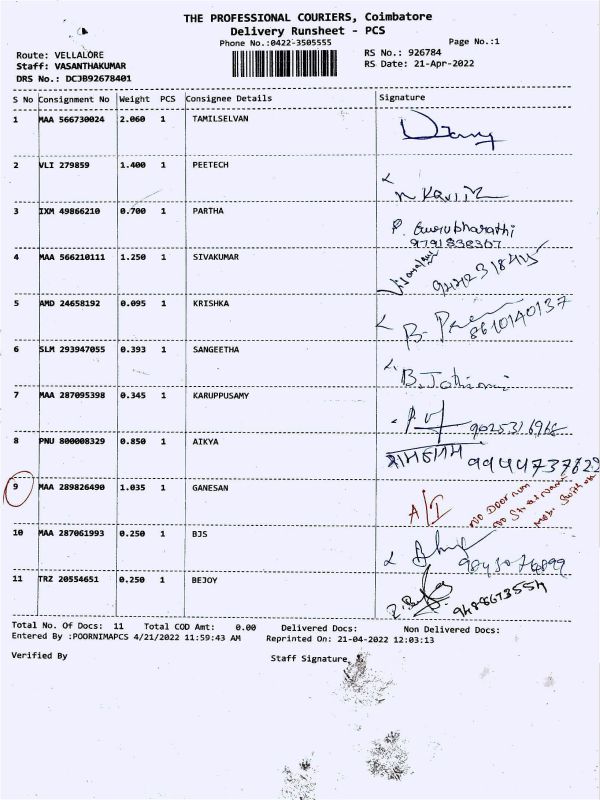 THE PROFESSIONAL COURIERS, Coimbatore
Delivery Runsheet - PCS
Phone No.:0422-3505555
Page No.:1
Route: VELLALORE
RS No.: 926784
Staff: VASANTHAKUMAR
RS Date: 21-Apr-2022
DRS No.: DCJB92678401
S No Consignment No Weight PCS Consignee Details Signature
1 MAA 566730024 2.060 1 TAMILSELVAN
2 VLI 279859 1.400 1 PEETECH
3 IXM 49866210 0.700 1 PARTHA P. Gurubharathi
9791838307
4 MAA 566210111 1.250 1 SIVAKUMAR
5 AMD 24658192 0.095 1 KRISHKA B. 8610140137
6 SLM 293947055 0.393 1 SANGEETHA B.
7 MAA 287095398 0.345 1 KARUPPUSAMY
8 PNU 800008329 0.850 1 AIKYA
9 MAA 289826490 1.035 1 GANESAN A/I NO Door num
10 MAA 287061993 0.250 1 BJS
11 TRZ 20554651 0.250 1 BEJOY
Total No. Of Docs: 11 Total COD Amt: 0.00 Delivered Docs: Non Delivered Docs:
Entered By :POORNIMAPCS 4/21/2022 11:59:43 AM Reprinted On: 21-04-2022 12:03:13
Verified By Staff Signature